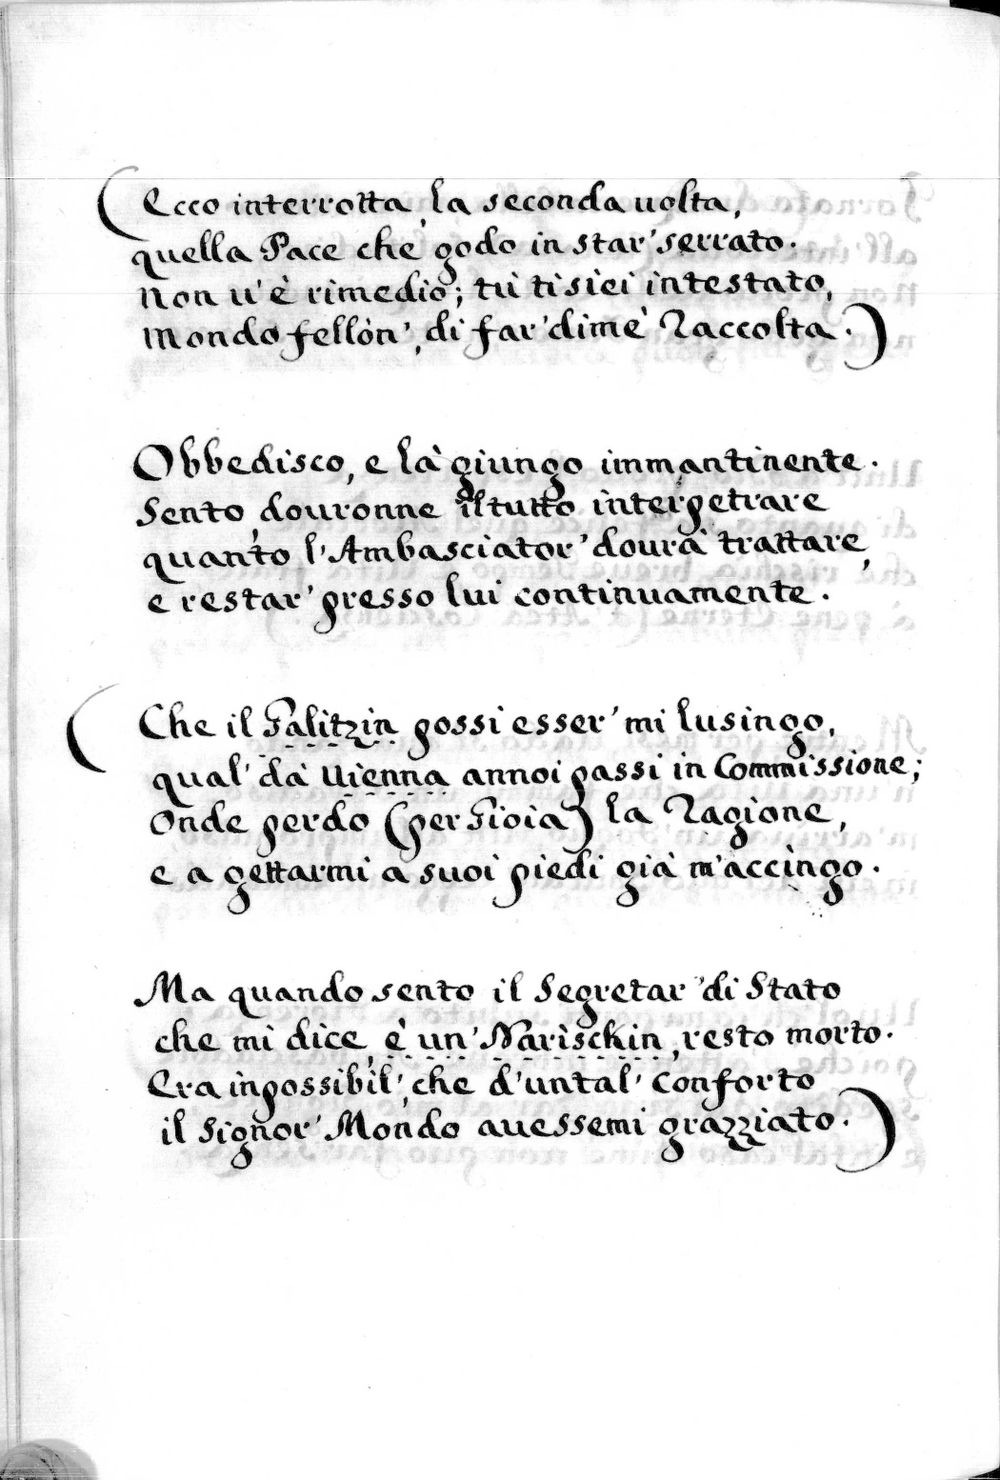 (Ecco interrotta, la seconda uolta,
quella Pace che godo in star' serrato.
Non u'è rimedio; tù ti siei intestato,
Mondo fellòn', di far' di mè Raccolta.)
Obbedisco, e là giungo immantinente.
Sento douronne il tutto interpetrare
quanto l'Ambasciator' dourà trattare,
e restar' presso lui continuamente.
(Che il Galitzin possi esser' mi lusingo,
qual' dà Uienna annoi passi in Commissione;
Onde perdo (per Gioia) la Ragione,
e a gettarmi a suoi piedi già m'accingo.
Ma quando sento il Segretar' di Stato
che mi dice, è un' Narischkin, resto morto.
Era inpossibil', che d'un tal' conforto
il Signor' Mondo auessemi grazziato.)